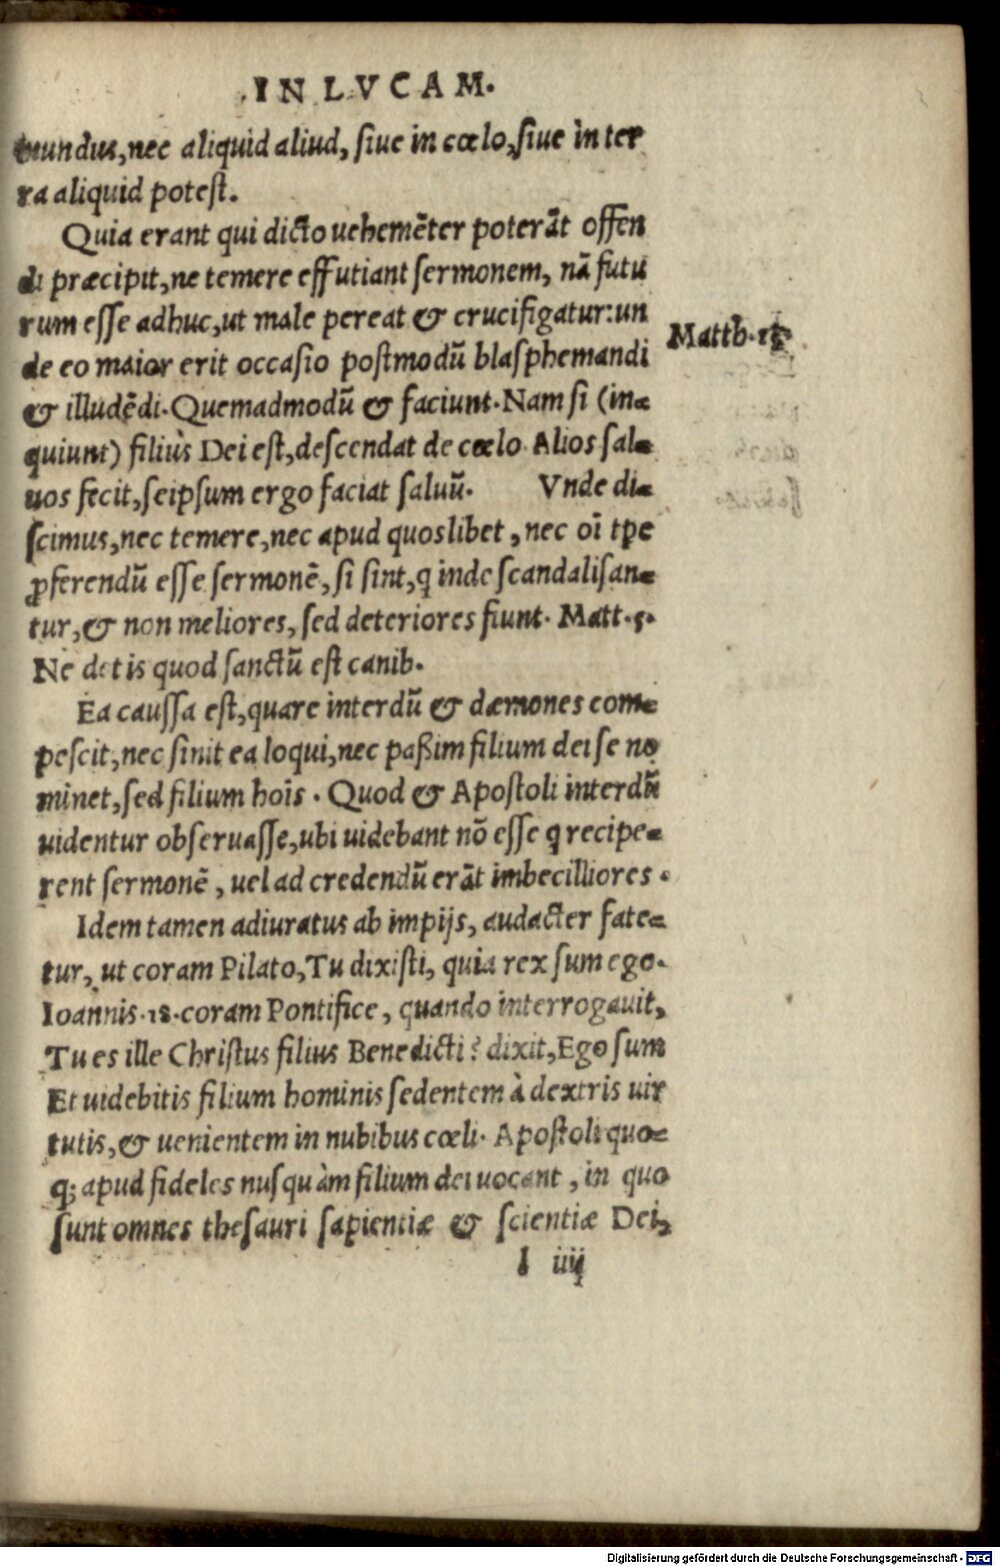 IN LVCAM.
mundus, nec aliquid aliud, siue in cœlo, siue in ter
ra aliquid potest.
Quia erant qui dicto uehemēter poterāt offen
di præcipit, ne temere effutiant sermonem, nā futu
rum esse adhuc, ut male pereat & crucifigatur: un
Matth. 16.
de eo maior erit occasio postmodū blasphemandi
& illudēdi. Quemadmodū & faciunt. Nam si (in-
quiunt) filius Dei est, descendat de cœlo Alios sal-
uos fecit, seipsum ergo faciat saluū. Vnde di-
scimus, nec temere, nec apud quoslibet, nec oī tpe
ꝓferendū esse sermonē, si sint, q inde scandalisan-
tur, & non meliores, sed deteriores fiunt. Matt. 5.
Ne detis quod sanctū est canib.
Ea caussa est, quare interdū & dæmones com-
pescit, nec sinit ea loqui, nec paßim filium dei se no
minet, sed filium hois. Quod & Apostoli interdū
uidentur obseruasse, ubi uidebant nō esse q recipe-
rent sermonē, uel ad credendū erāt imbecilliores.
Idem tamen adiuratus ab impijs, audacter fate-
tur, ut coram Pilato, Tu dixisti, quia rex sum ego.
Ioannis. 18. coram Pontifice, quando interrogauit,
Tu es ille Christus filius Benedicti? dixit, Ego sum
Et uidebitis filium hominis sedentem à dextris uir
tutis, & uenientem in nubibus cœli. Apostoli quo-
q; apud fideles nusquàm filium dei uocant, in quo
sunt omnes thesauri sapientiæ & scientiæ Dei,
l iiij
Digitalisierung gefördert durch die Deutsche Forschungsgemeinschaft - DFG